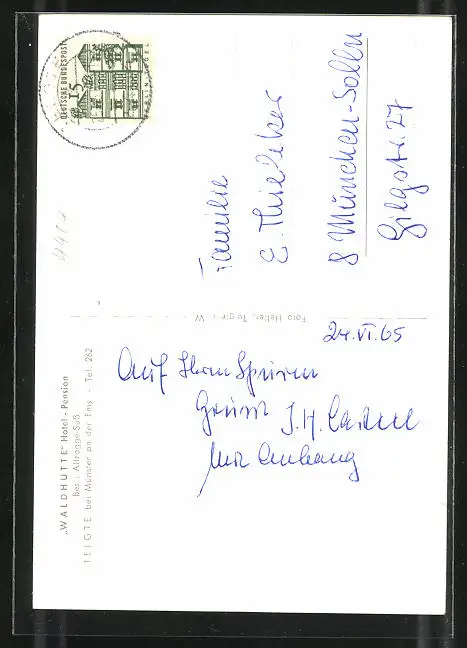 DEUTSCHE BUNDESPOST
15
Familie
E. Thieleker
8 München-Solln
Gilgstr. 27
Foto Heller, Telgte i. W.
24. VI. 65
Auf Ihren Spuren
J. H.
mit Anhang
„WALDHÜTTE" Hotel - Pension
Bes.: Altrogge-Suß
TELGTE bei Münster an der Ems - Tel. 262